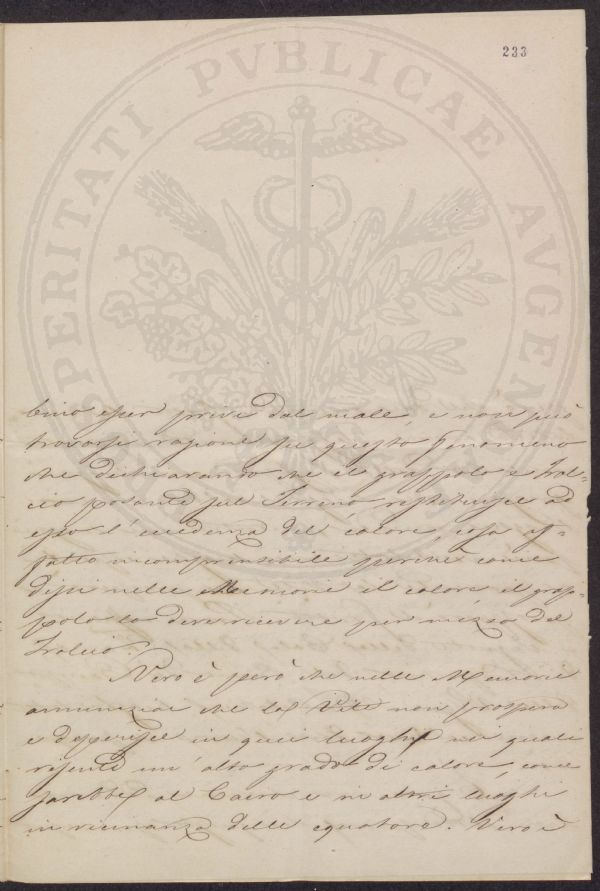 233
PROSPERITATI PVBLICAE AVGENDAE
bino esser privi dal male, e non può
trovarsi ragione su questo fenomeno
che dichiarando che il grappolo e tral-
cio posante sul Terreno restituisce ad
esso l'eccedenza del calore, cosa af-
fatto incomprensibile perchè come
dissi nelle Memorie il calore il grap-
polo lo deve ricevere per mezzo del
tralcio.
Vero è però che nelle Memorie
annunziai che la Vite non prospera
e deperisce in quei luoghi nei quali
risente un'alto grado di calore, come
sarebbe al Cairo e in altri luoghi
in vicinanza delle equatore. Vero è